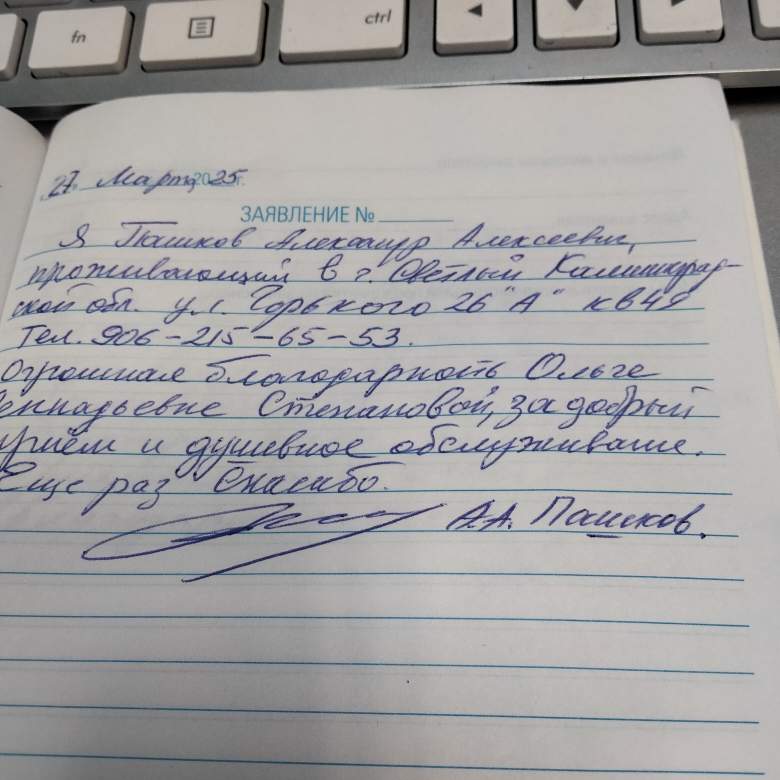 fn
ctrl
27. Марта 2025г.
ЗАЯВЛЕНИЕ №
Я Пашков Александр Алексеевич,
проживающий в г. Светлый Калининград-
ской обл. ул. Горького 26 "А" кв 49
Тел. 906-215-65-53.
Огромная благодарность Ольге
Геннадьевне Степановой, за добрый
приём и душевное обслуживание.
Еще раз Спасибо.
А.А. Пашков.